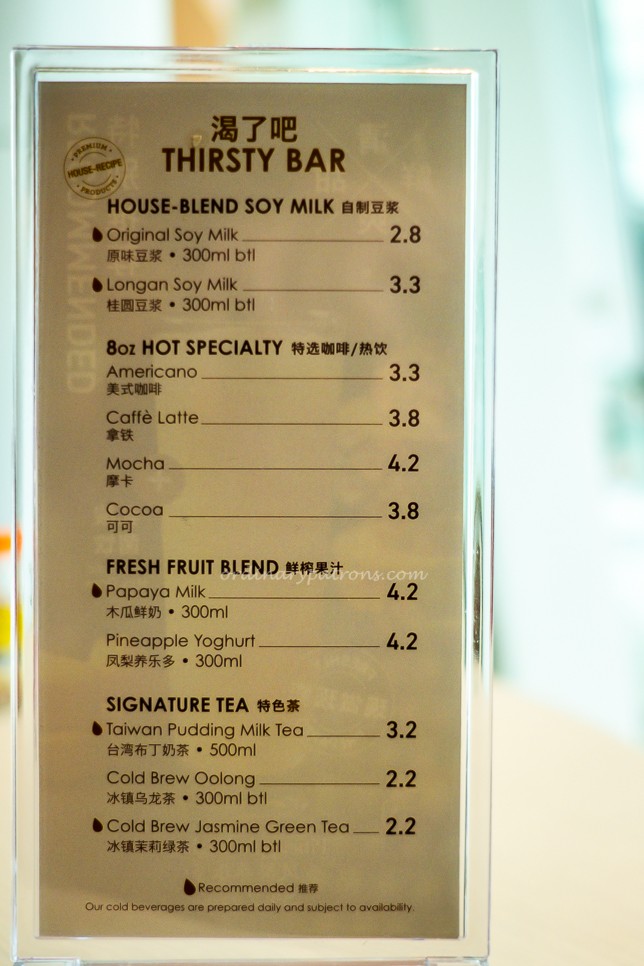 渴了吧
THIRSTY BAR
PREMIUM
HOUSE-RECIPE
PRODUCTS
HOUSE-BLEND SOY MILK 自制豆浆
Original Soy Milk 2.8
原味豆浆 • 300ml btl
Longan Soy Milk 3.3
桂圆豆浆 • 300ml btl
8oz HOT SPECIALTY 特选咖啡/热饮
Americano 3.3
美式咖啡
Caffè Latte 3.8
拿铁
Mocha 4.2
摩卡
Cocoa 3.8
可可
FRESH FRUIT BLEND 鲜榨果汁
ordinarypatrons.com
Papaya Milk 4.2
木瓜鲜奶 • 300ml
Pineapple Yoghurt 4.2
凤梨养乐多 • 300ml
SIGNATURE TEA 特色茶
Taiwan Pudding Milk Tea 3.2
台湾布丁奶茶 • 500ml
Cold Brew Oolong 2.2
冰镇乌龙茶 • 300ml btl
Cold Brew Jasmine Green Tea 2.2
冰镇茉莉绿茶 • 300ml btl
Recommended 推荐
Our cold beverages are prepared daily and subject to availability.